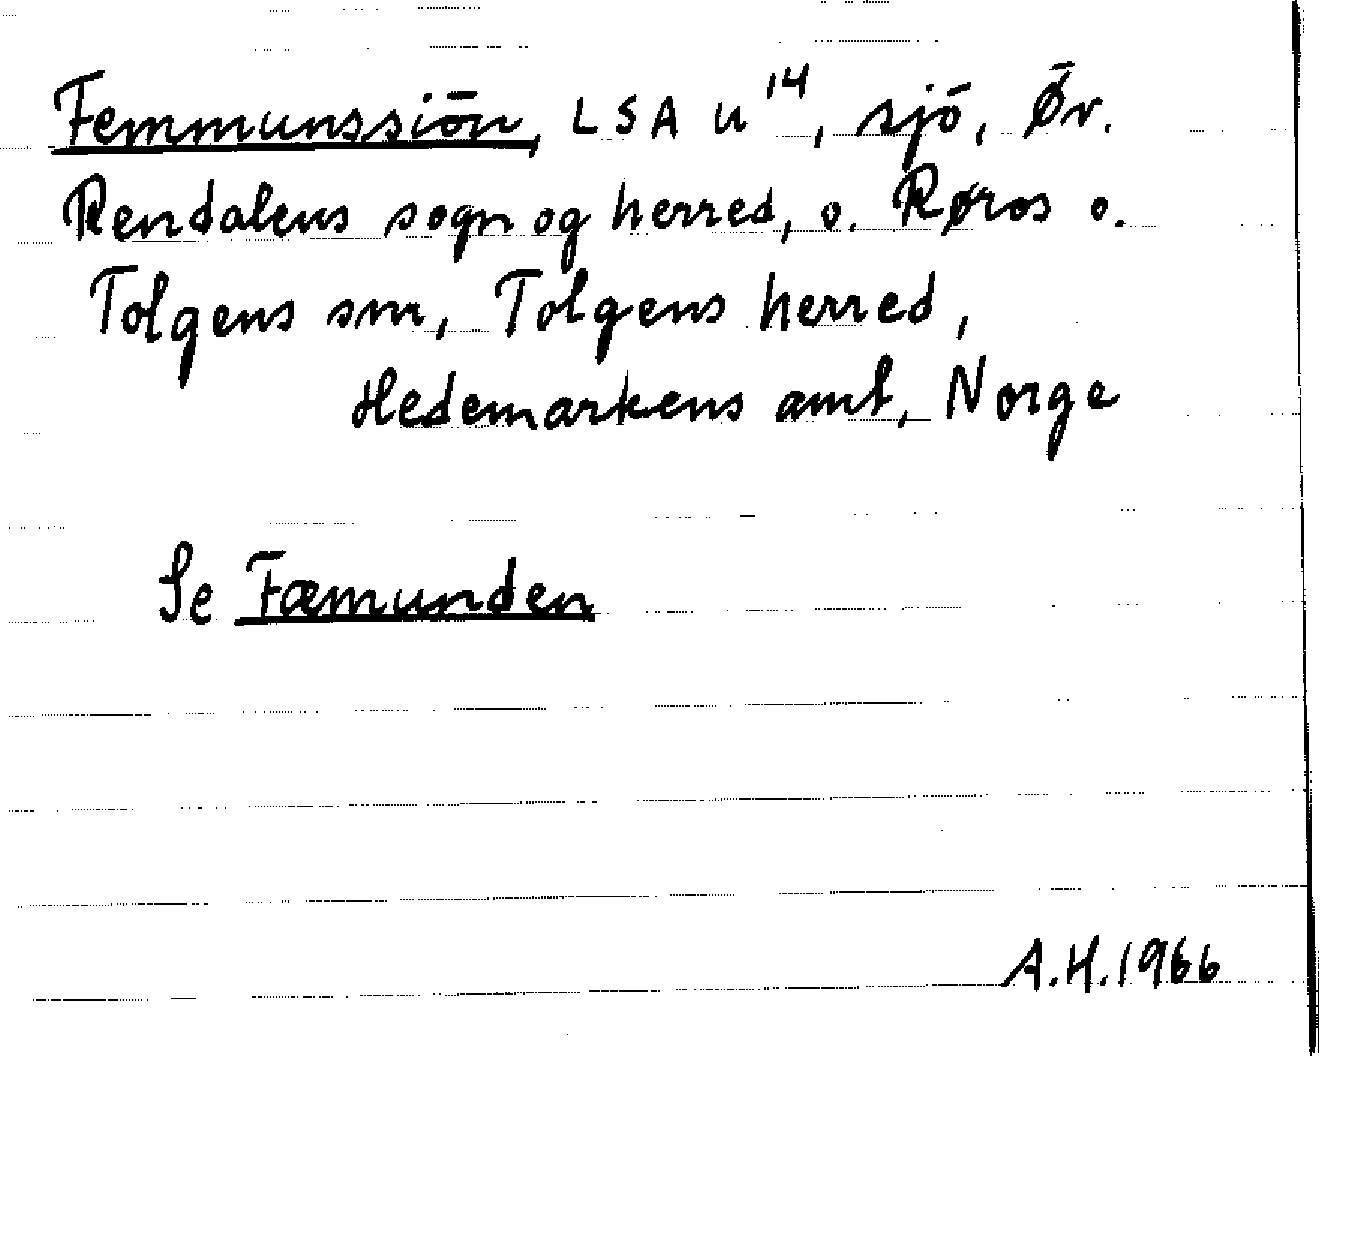 Femmunssiön, LSA U¹⁴, sjö, Øv.
Rendalens sogn og herred, o. Røros o.
Tolgens snr, Tolgens herred,
Hedemarkens amt, Norge
Se Fæmunden
A.H.1966